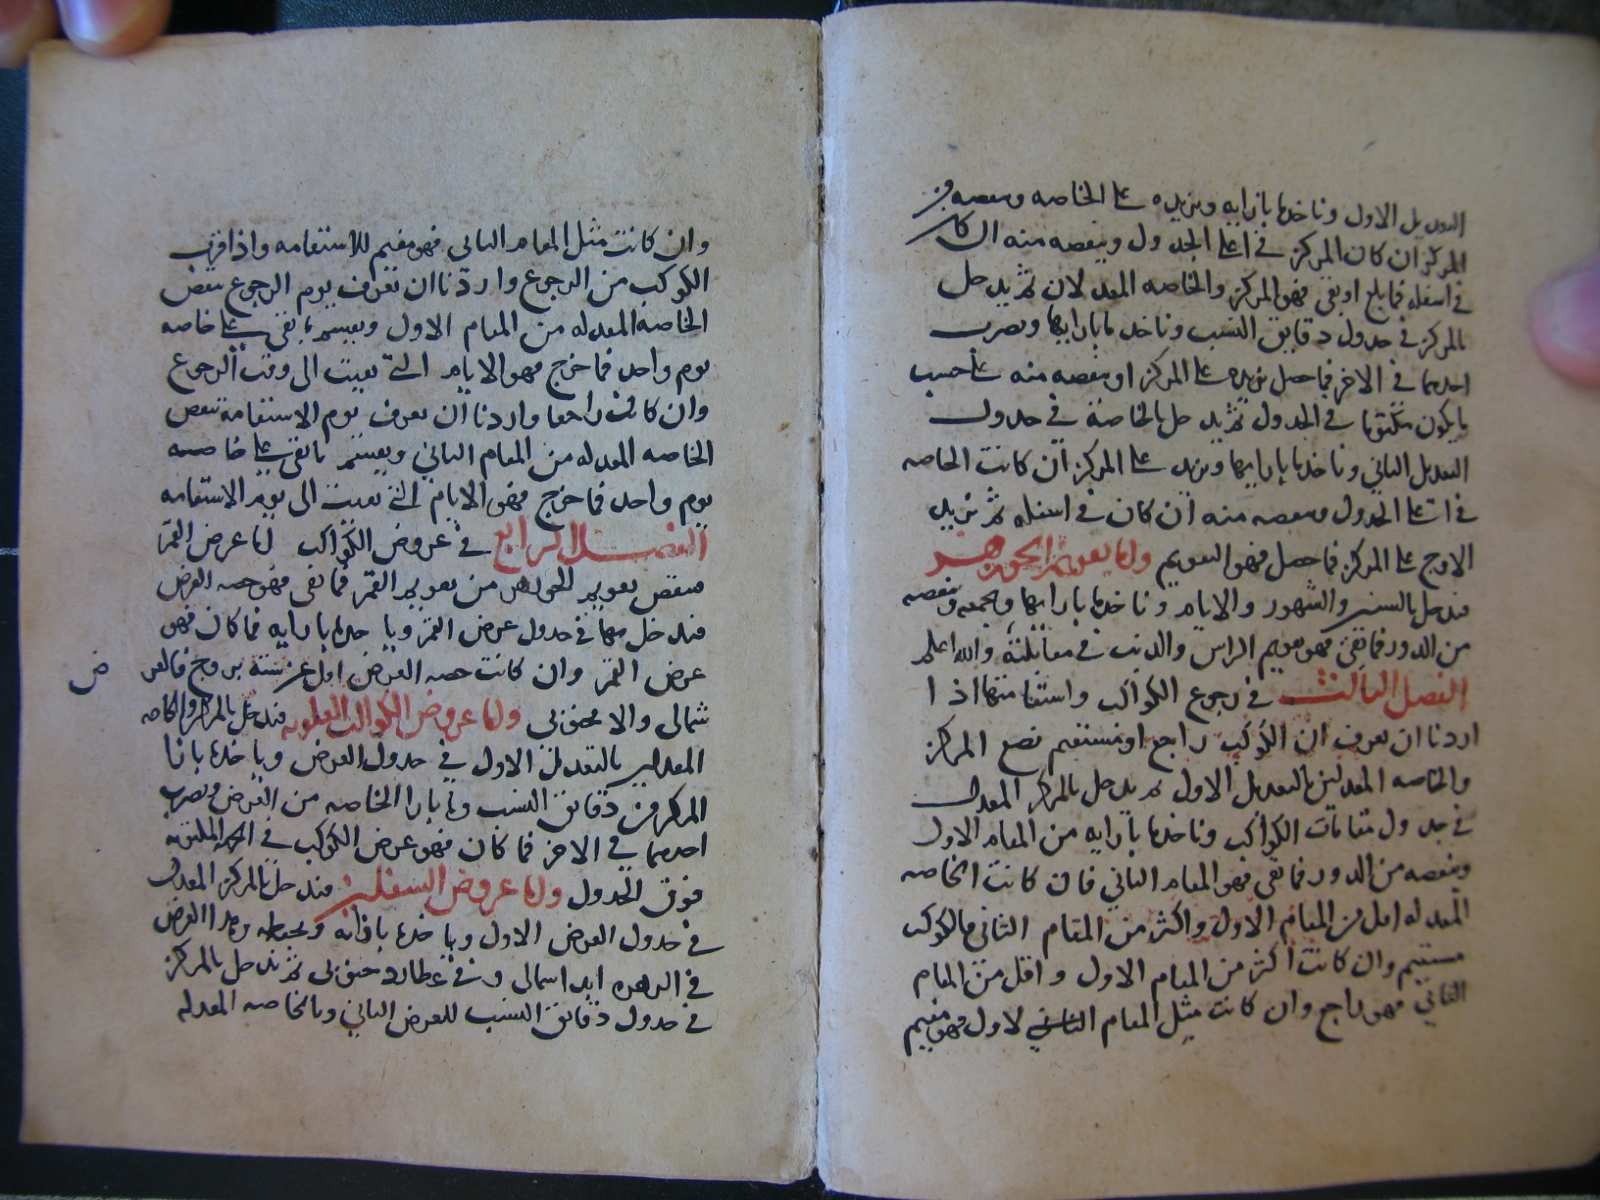 التعديل الاول وناخذ ما بازايه ونزيده على الخاصه وننقصه من
المركز ان كان المركز في اعلى الجدول وننقصه منه ان كان
في اسفله فما بلغ او بقي فهو المركز والخاصه المعدلان ثم ندخل
بالمركز في جدول دقايق النسب وناخذ ما بازايها ونضرب
احدهما في الاخر فما حصل نزيده على المركز او ننقصه منه على حسب
ما يكون مكتوبا في الجدول ثم ندخل بالخاصة في جدول
التعديل الثاني وناخذ ما بازايها ونزيد على المركز ان كانت الخاصه
في اعلى الجدول وننقصه منه ان كان في اسفله ثم نزيد
الاوج على المركز فما حصل فهو التقويم واما تقويم الجوزهر
فندخل بالسنين والشهور والايام وناخذ ما بازايها ونجمعه وننقصه
من الدور فما بقي فهو تقويم الراس والذنب في مقابلته والله اعلم
الفصل الثالث في رجوع الكواكب واستقامتها اذا
اردنا ان نعرف ان الكوكب راجع او مستقيم نضع المركز
والخاصه المعدلين بالتعديل الاول ثم ندخل بالمركز المعدل
في جدول مقامات الكواكب وناخذ ما بازايه من المقام الاول
وننقصه من الدور فما بقي فهو المقام الثاني فان كانت الخاصه
المعدله اقل من المقام الاول واكثر من المقام الثاني فالكوكب
مستقيم وان كانت اكثر من المقام الاول واقل من المقام
الثاني فهو راجع وان كانت مثل المقام الاول فهو مقيم
وان كانت مثل المقام الثاني فهو مقيم للاستقامه واذا قرب
الكوكب من الرجوع واردنا ان نعرف يوم الرجوع ننقص
الخاصه المعدله من المقام الاول ونقسم ما بقي على خاصه
يوم واحد فما خرج فهو الايام التي بقيت الى وقت الرجوع
وان كانت راجعا واردنا ان نعرف يوم الاستقامة ننقص
الخاصه المعدله من المقام الثاني ونقسم ما بقي على خاصه
يوم واحد فما خرج فهو الايام التي بقيت الى يوم الاستقامه
الفصل الرابع في عروض الكواكب اما عرض القمر
فننقص تقويم الجوزهر من تقويم القمر فما بقي فهو حصه العرض
فندخل بها في جدول عرض القمر وناخذ ما بازايه فما كان فهو
عرض القمر وان كانت حصه العرض اقل من ستة بروج فالعر
ض
شمالي والا فجنوبي واما عروض الكواكب العلويه فندخل بالمركز والخاصه
المعدلين بالتعديل الاول في جدول العرض وناخذ ما بازا
المركز من دقايق النسب وما بازا الخاصه من العرض ونضرب
احدهما في الاخر فما كان فهو عرض الكوكب في الجهة المكتوبه
فوق الجدول واما عروض السفليين فندخل بالمركز المعدل
في جدول العرض الاول وناخذ ما بازائه ونحفظه وهذا العرض
في الزهره ابدا شمالي وفي عطارد جنوبي ثم ندخل بالمركز
في جدول دقائق النسب للعرض الثاني وبالخاصه المعدله